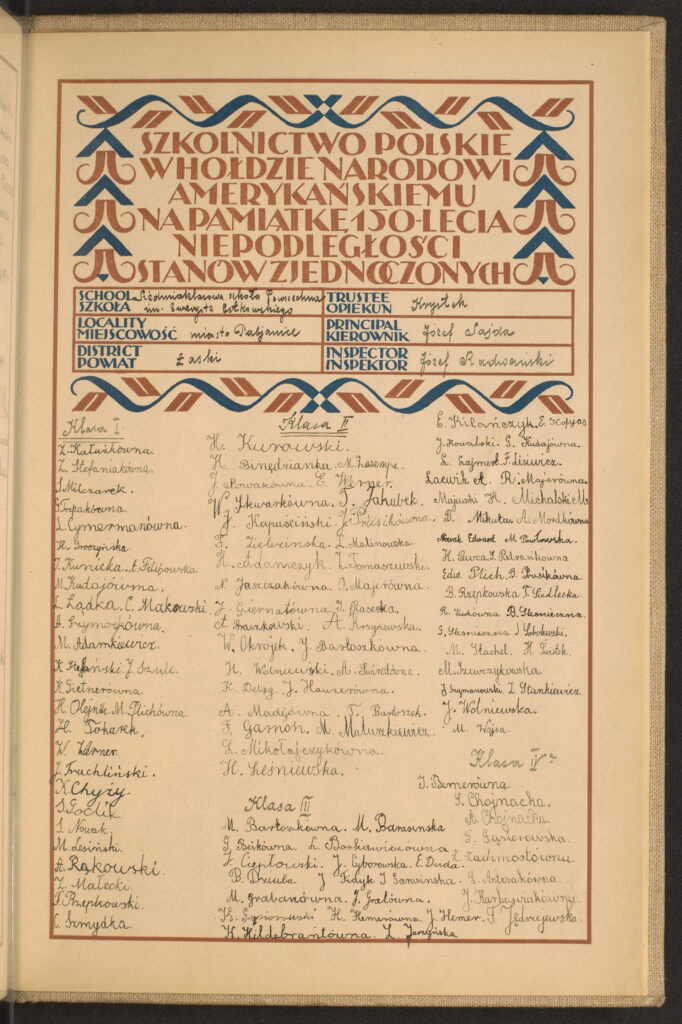 SZKOLNICTWO POLSKIE
W HOŁDZIE NARODOWI
AMERYKAŃSKIEMU
NA PAMIĄTKĘ 150-LECIA
NIEPODLEGŁOŚCI
STANÓW ZJEDNOCZONYCH
SCHOOL
SZKOŁA
Siedmioklasowa szkoła Powszechna
im. Ewarysta Estkowskiego
LOCALITY
MIEJSCOWOŚĆ
miasto Pabjanice
DISTRICT
POWIAT
Łaski
TRUSTEE
OPIEKUN
Krystek
PRINCIPAL
KIEROWNIK
Józef Sajda
INSPECTOR
INSPEKTOR
Józef Radwański
Klasa I
Z. Kałużkówna.
Z. Stefaniakówna.
S. Milczarek.
L. Cymermanówna.
H. Troczyńska.
J. Kurnicka. A. Filipowska
M. Kudajówna.
L. Lqdka. C. Makowski
A. Szymorkówna.
M. Adamkiewicz.
K. Stefański. J. Szulc.
K. Gietnerówna.
H. Olejnik. M. Plichówna.
H. Tokarek.
W. Werner.
J. Fruchliński.
K. Chyży.
S. Goclik.
S. Nowak.
M. Lesiński.
A. Rąkowski.
Z. Małecki.
F. Przepkowski.
C. Szmydka.
Klasa II
H. Kurowski.
H. Binędzianka.
J. Nowakówna. E. Werner.
W. Skwarkówna. T. Jakubek.
J. Kapuściński. J. Presikówna
F. Zielezinska. L. Malinowska
H. Adamczyk. Z. Tomaszewski.
N. Jaszczakówna. O. Majerówna.
J. Giernatówna.
A. Krzyżewska.
W. Okrojek. J. Bartoszkówna.
H. Wolniewski. A. Świratówna.
K. Deląg. J. Hauzerówna.
A. Madjówna. T. Bartoszek.
F. Gamoń. M. Matuszkiewicz.
L. Mikołajczykówna.
H. Leśniewska.
Klasa III
M. Bartoszkówna. M. Barasinska
G. Beikówna. L. Borkawiczówna
L. Ciepłowski. J. Cyborowska. E. Duda.
B. Druuba. J. Fidyk. I. Garasinska.
M. Grabanówna. J. Gralówna.
K. Gąsiorowski. H. Hemerówna. J. Hemer.
K. Hildebrantówna. L. Jarzyńska
E. Kilańczyk. E. Koppas
J. Kowalski. G. Kudajówna.
L. Lajmert. F. Lisiwicz.
Laewik A. R. Majerówna
Majewski H. Michalski M.
B. Mikuta. A. Mordkówna
Nowak Edward. M. Pawłowska.
H. Pietrasikówna
Edw. Plich. B. Prasikówna
B. Rzepkowska. T. Sadlecka.
R. Sukówna. B. Skonieczna.
G. Skonieczna. J. Sobolewski.
M. Stachel. H. Surtek.
M. Szewczykowska.
J. Szymanowski. Z. Stankiewicz.
J. Wolniewska.
M. Wojsa.
Klasa IV a
J. Bernerówna
S. Chojnacka.
A. Chojnacka.
T. Gąsiorowska.
Z. Zachmostówna
J. Karbowiakówna
F. Jędrzejewska.